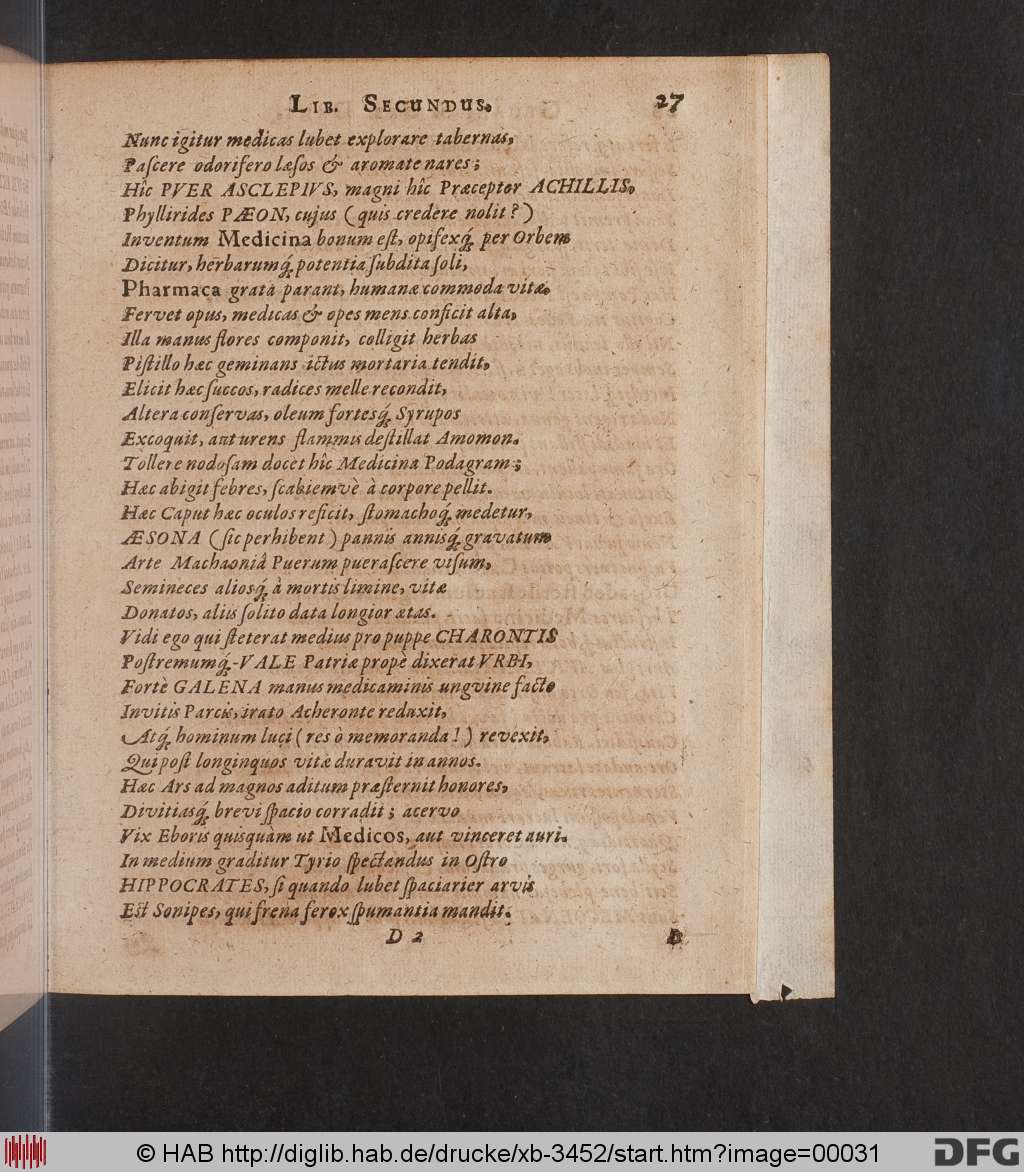 LIB. SECUNDUS. 27
Nunc igitur medicas lubet explorare tabernas,
Paſcere odorifero læſos & aromate nares;
Hîc PVER ASCLEPIVS, magni hîc Præceptor ACHILLIS,
Phyllirides PÆON, cujus (quis credere nolit?)
Inventum Medicina bonum eſt, opifexq́; per Orbem
Dicitur, herbarumq́; potentia ſubdita ſoli,
Pharmaca grata parant, humanæ commoda vitæ.
Fervet opus, medicas & opes mens conficit alta,
Illa manus flores componit, colligit herbas
Piſtillo hæc geminans ictus mortaria tendit,
Elicit hæc ſuccos, radices melle recondit,
Altera conſervas, oleum fortesq́; Syrupos
Excoquit, aut urens flammis deſtillat Amomon.
Tollere nodoſam docet hîc Medicina Podagram;
Hæc abigit febres, ſcabiemvè à corpore pellit.
Hæc Caput hæc oculos reficit, ſtomachoq́; medetur,
ÆSONA (ſic perhibent) pannis annisq́; gravatum
Arte Machaoniâ Puerum pueraſcere viſum,
Semineces aliosq́; à mortis limine, vitæ
Donatos, alius ſolito data longior ætas.
Vidi ego qui ſteterat medius pro puppe CHARONTIS
Poſtremumq́;-VALE Patriæ propè dixerat VRBI,
Fortè GALENA manus medicaminis ungvine facto
Invitis Parcis, irato Acheronte reduxit,
Atq́; hominum luci (res ò memoranda!) revexit,
Qui poſt longinquos vitæ duravit in annos.
Hæc Ars ad magnos aditum præſternit honores,
Divitiasq́; brevi ſpacio corradit; acervo
Vix Eboris quisquàm ut Medicos, aut vinceret auri.
In medium graditur Tyrio ſpectandus in Oſtro
HIPPOCRATES, ſi quando lubet ſpaciarier arvis
Eſt Sonipes, qui frena ferox ſpumantia mandit.
D 2 D
© HAB http://diglib.hab.de/drucke/xb-3452/start.htm?image=00031
DFG